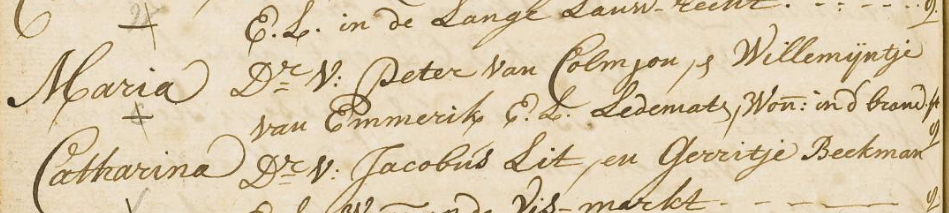 E. L. in de Lange Lauw-recht.
Maria Dr. V: Peter van Colmjon, & Willemÿntje
van Emmerik E. L. Ledemats, Won: in d brandst
Catharina Dr. V: Jacobus Lit, en Gerritje Beekman
E. L. W in de Vis-markt